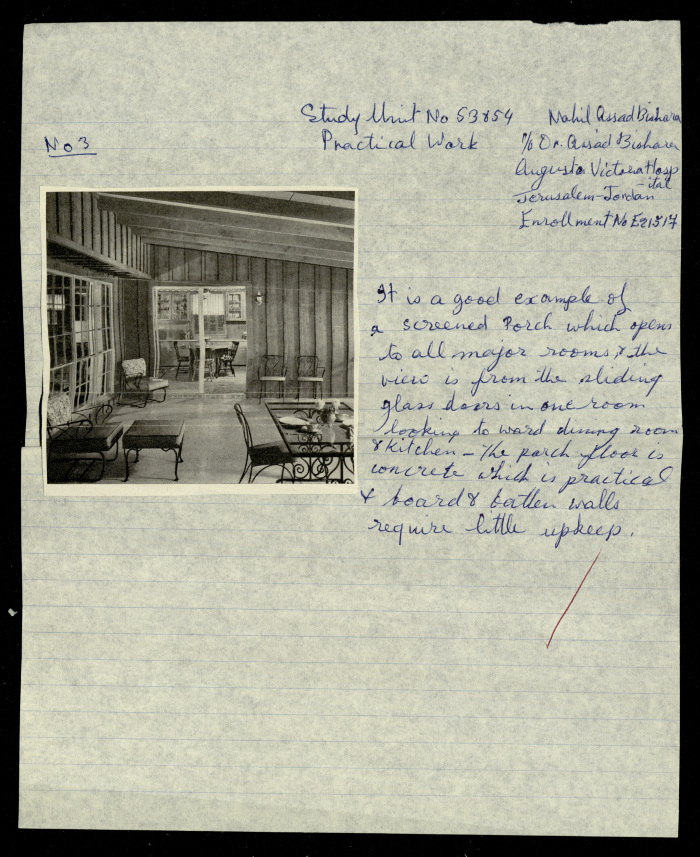 Study Unit No 53&54
Practical Work
No 3
Nahil Assad Bishara
c/o Dr. Assad Bishara
Augusta Victoria Hosp
-ital
Jerusalem-Jordan
Enrollment No E21517
It is a good example of
a screened Porch which opens
to all major rooms, & the
view is from the sliding
glass doors in one room
looking to ward dining room
& kitchen - The porch floor is
concrete which is practical
& board & batten walls
require little upkeep.